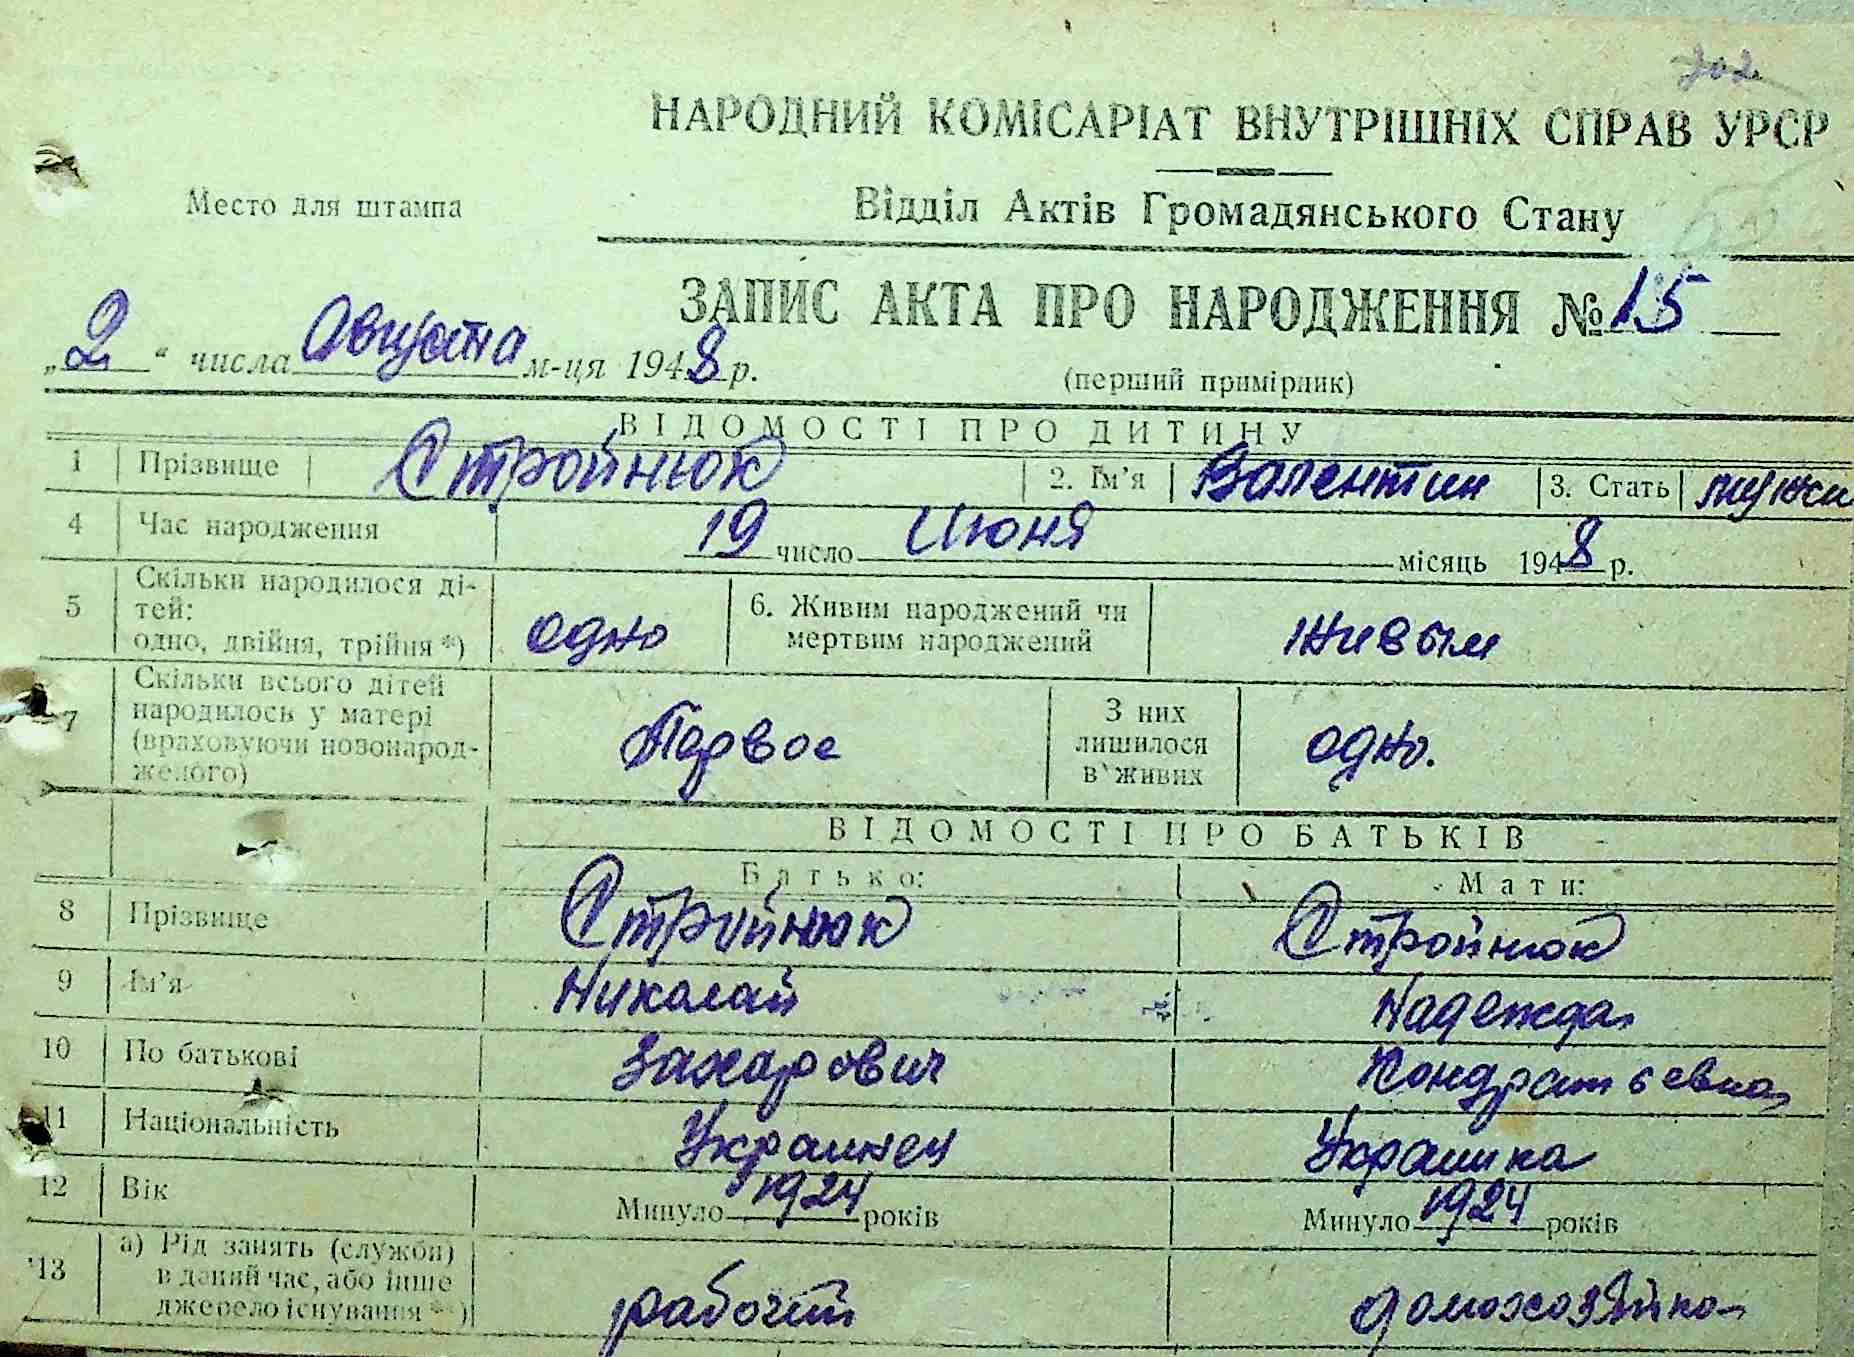 202
НАРОДНИЙ КОМІСАРІАТ ВНУТРІШНІХ СПРАВ УРСР
Место для штампа
Відділ Актів Громадянського Стану
ЗАПИС АКТА ПРО НАРОДЖЕННЯ № 15
„2“ числа Августа м-ця 1948 р.
(перший примірник)
ВІДОМОСТІ ПРО ДИТИНУ
1 Прізвище Стройнюк 2. Ім'я Валентин 3. Стать мужск
4 Час народження 19 число Июня місяць 1948 р.
5 Скільки народилося ді-
тей:
одно, двійня, трійня *) одно 6. Живим народжений чи
мертвим народжений живым
7 Скільки всього дітей
народилось у матері
(враховуючи новонарод-
женого) Первое З них
лишилося
в живих одно.
ВІДОМОСТІ ПРО БАТЬКІВ
Батько: Мати:
8 Прізвище Стройнюк Стройнюк
9 Ім'я Николай Надежда
10 По батькові Захарович Кондратьевна
11 Національність Украинец Украинка
12 Вік Минуло 1924 років Минуло 1924 років
13 а) Рід занять (служби)
в даний час, або інше
джерело існування *) рабочий домохозяйка